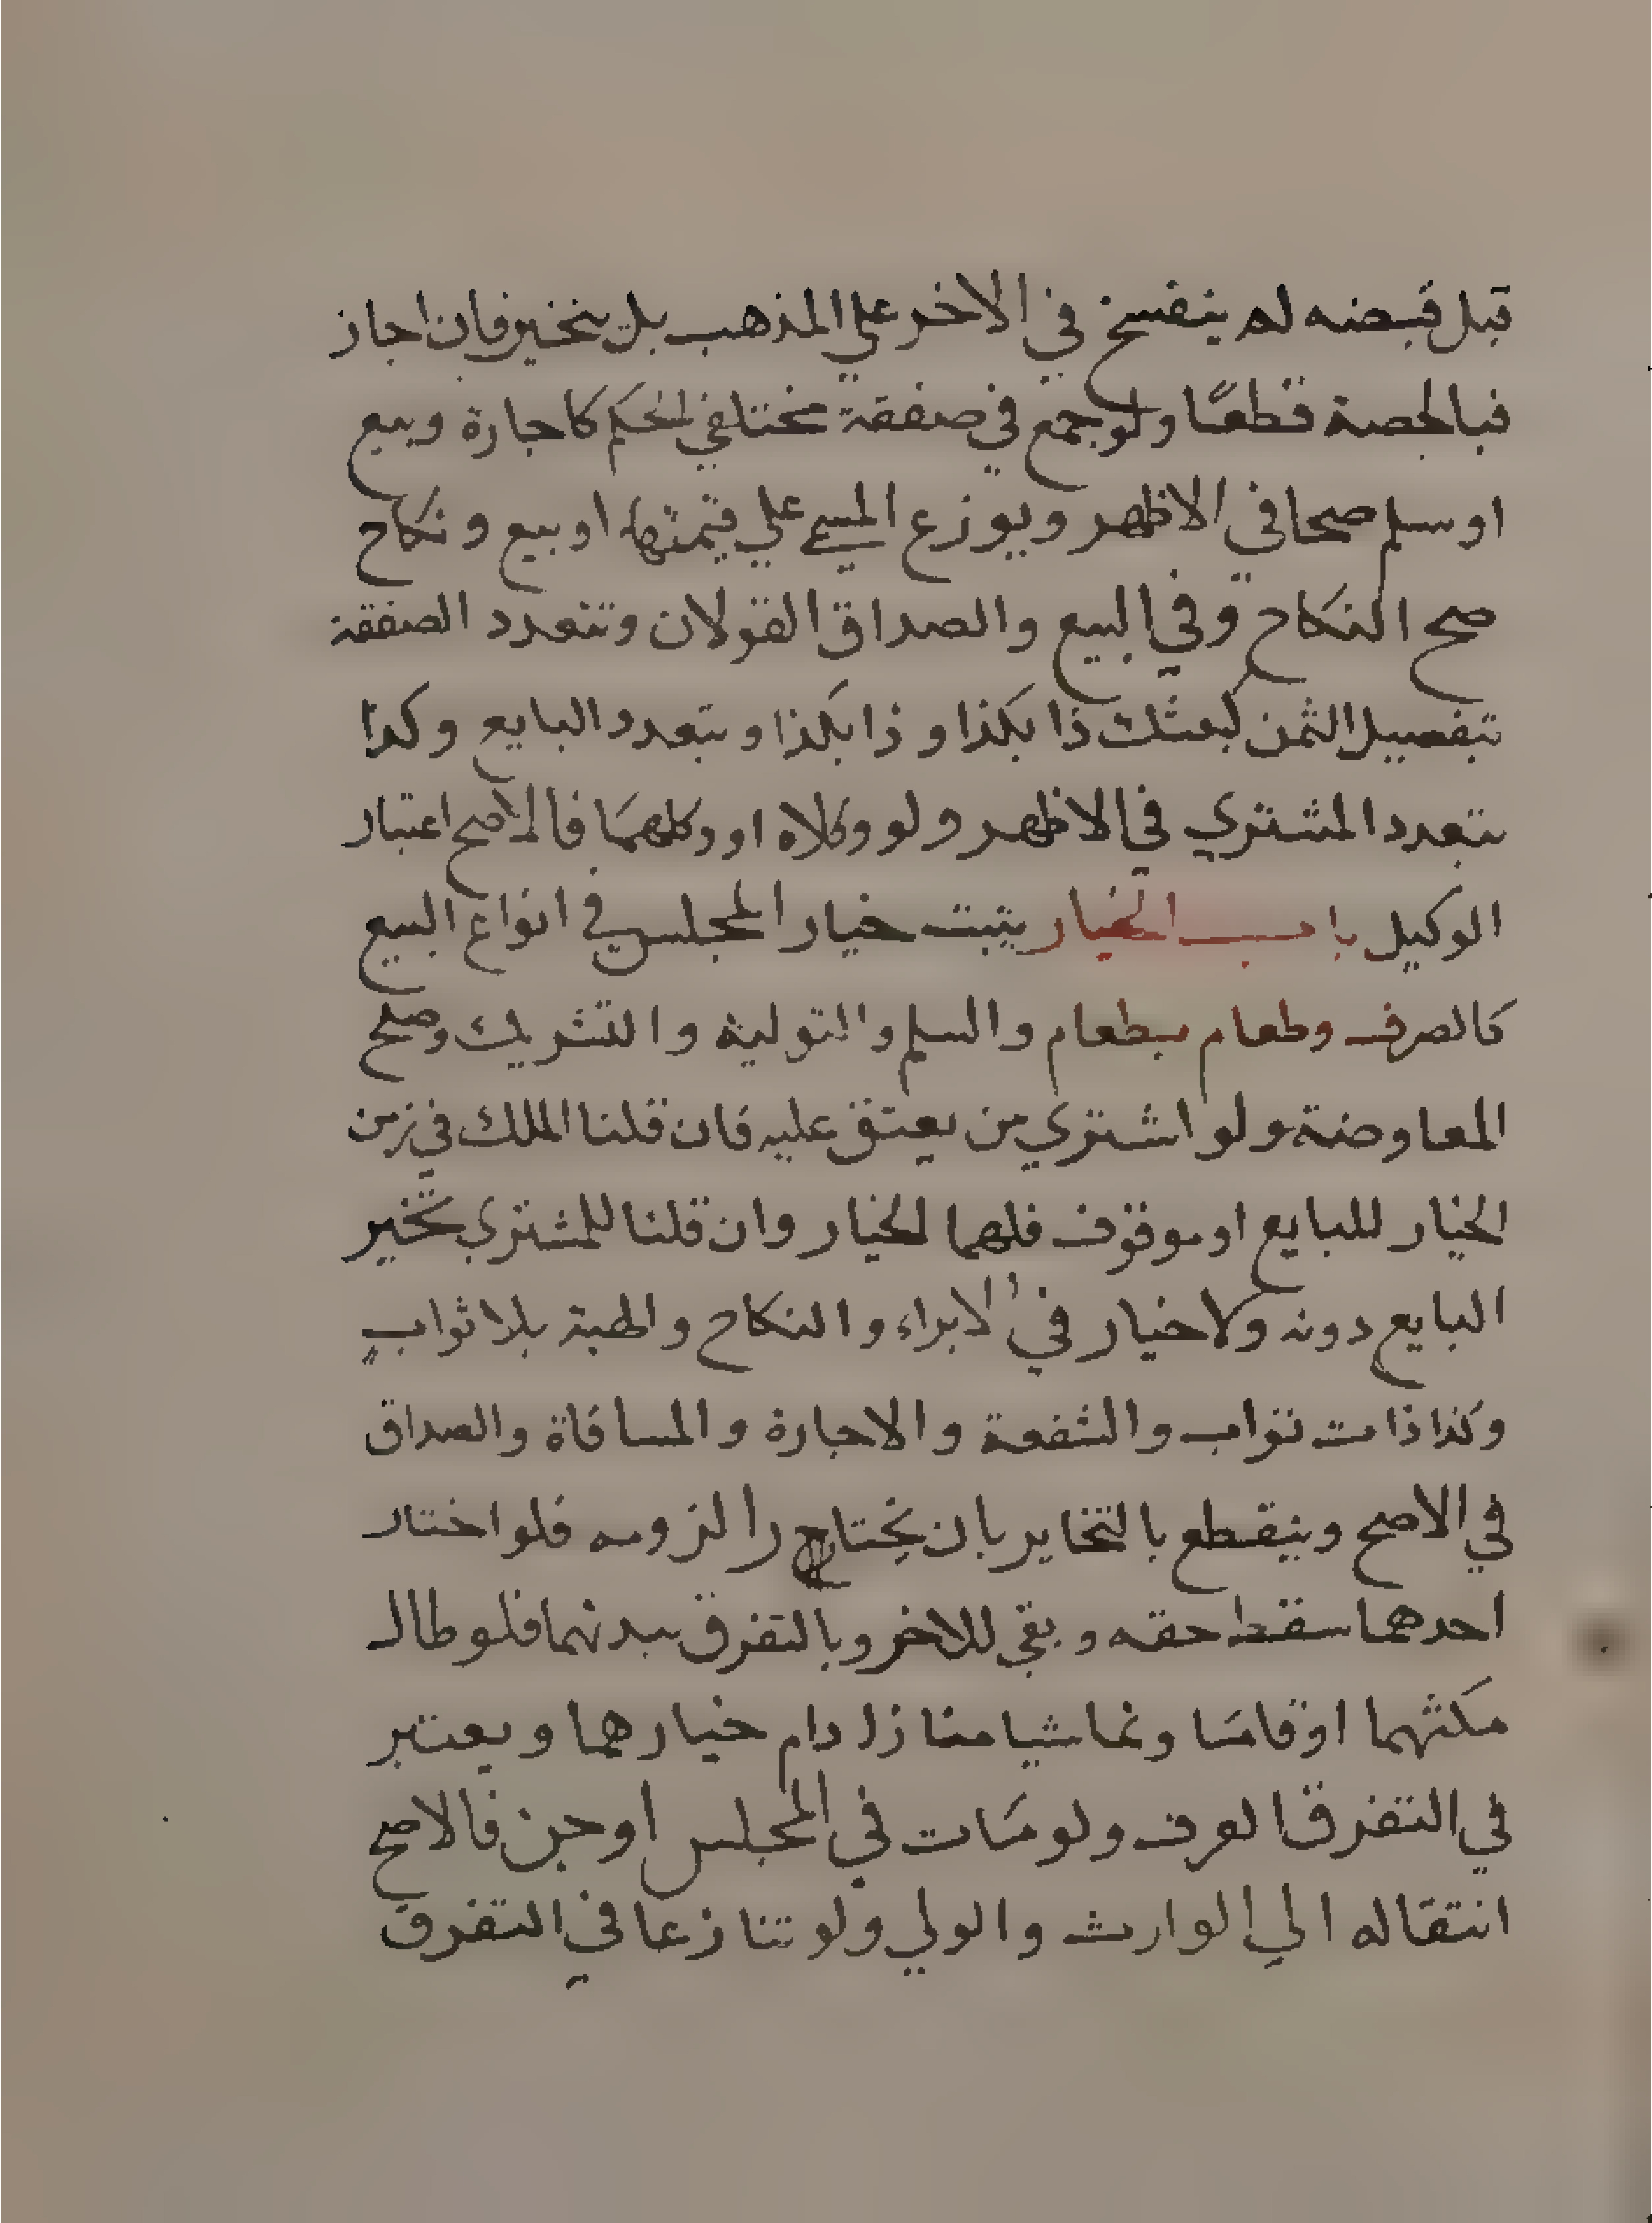 قبل قبضه لم ينفسخ في الاخر علي المذهب بل يتخير فان اجاز
فبالحصة قطعًا ولو جمع في صفقة مختلفي الحكم كاجارة وبيع
او سلم صحا في الاظهر ويوزع المسمي علي قيمتهما او بيع ونكاح
صح النكاح وفي البيع والصداق القولان وتتعدد الصفقة
بتفصيل الثمن كبعتك ذا بكذا وذا بكذا وبتعدد البايع وكذا
بتعدد المشتري في الاظهر ولو وكلاه او وكلهما فالاصح اعتبار
الوكيل باب الخيار يثبت خيار المجلس في انواع البيع
كالصرف وطعام بطعام والسلم والتولية والتشريك وصلح
المعاوضة ولو اشتري من يعتق عليه فان قلنا الملك في زمن
الخيار للبايع او موقوف فلهما الخيار وان قلنا للمشتري تخير
البايع دونه ولا خيار في الابراء والنكاح والهبة بلا ثواب
وكذا ذات ثواب والشفعة والاجارة والمساقاة والصداق
في الاصح وينقطع بالتخاير بان يختار لزومه فلو اختار
احدهما سقط حقه وبقي للاخر وبالتفرق ببدنهما فلو طال
مكثهما او قامَا وتماشيا منازل دام خيارهما ويعتبر
في التفرق العرف ولو مَات في المجلس او جن فالاصح
انتقاله الي الوارث والولي ولو تنازعا في التفرق